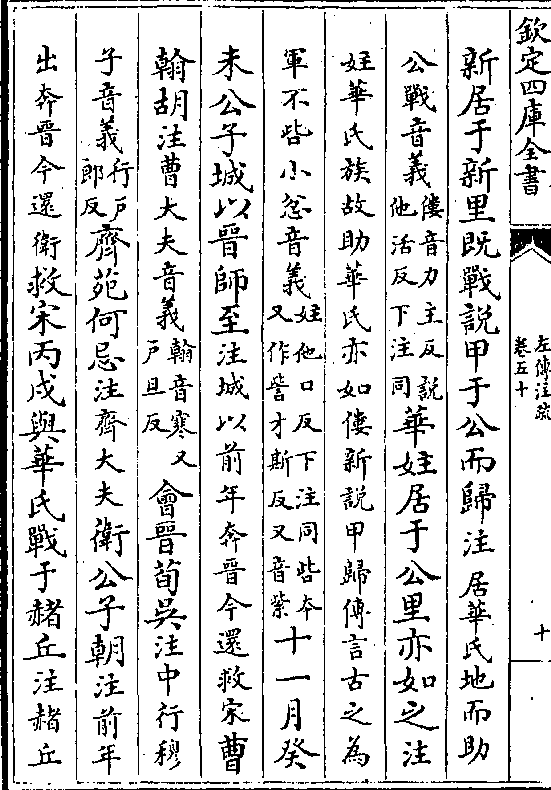 欽定四庫全書
左傳注疏
卷五十
十
新居于新里既戰說甲于公而歸注居華氏地而助
公戰音義僂音力主反說他活反下注同華妵居于公里亦如之注
妵華氏族故助華氏亦如僂新說甲歸傳言古之為
軍不呰小忿音義妵他口反下注同呰本又作訾才斯反又音紫十一月癸
未公子城以晉師至注城以前年奔晉今還救宋曹
翰胡注曹大夫音義翰音寒又戶旦反會晉荀吳注中行穆
子音義行戶郎反齊苑何忌注齊大夫衛公子朝注前年
出奔晉今還衛救宋丙戌與華氏戰于赭丘注赭丘